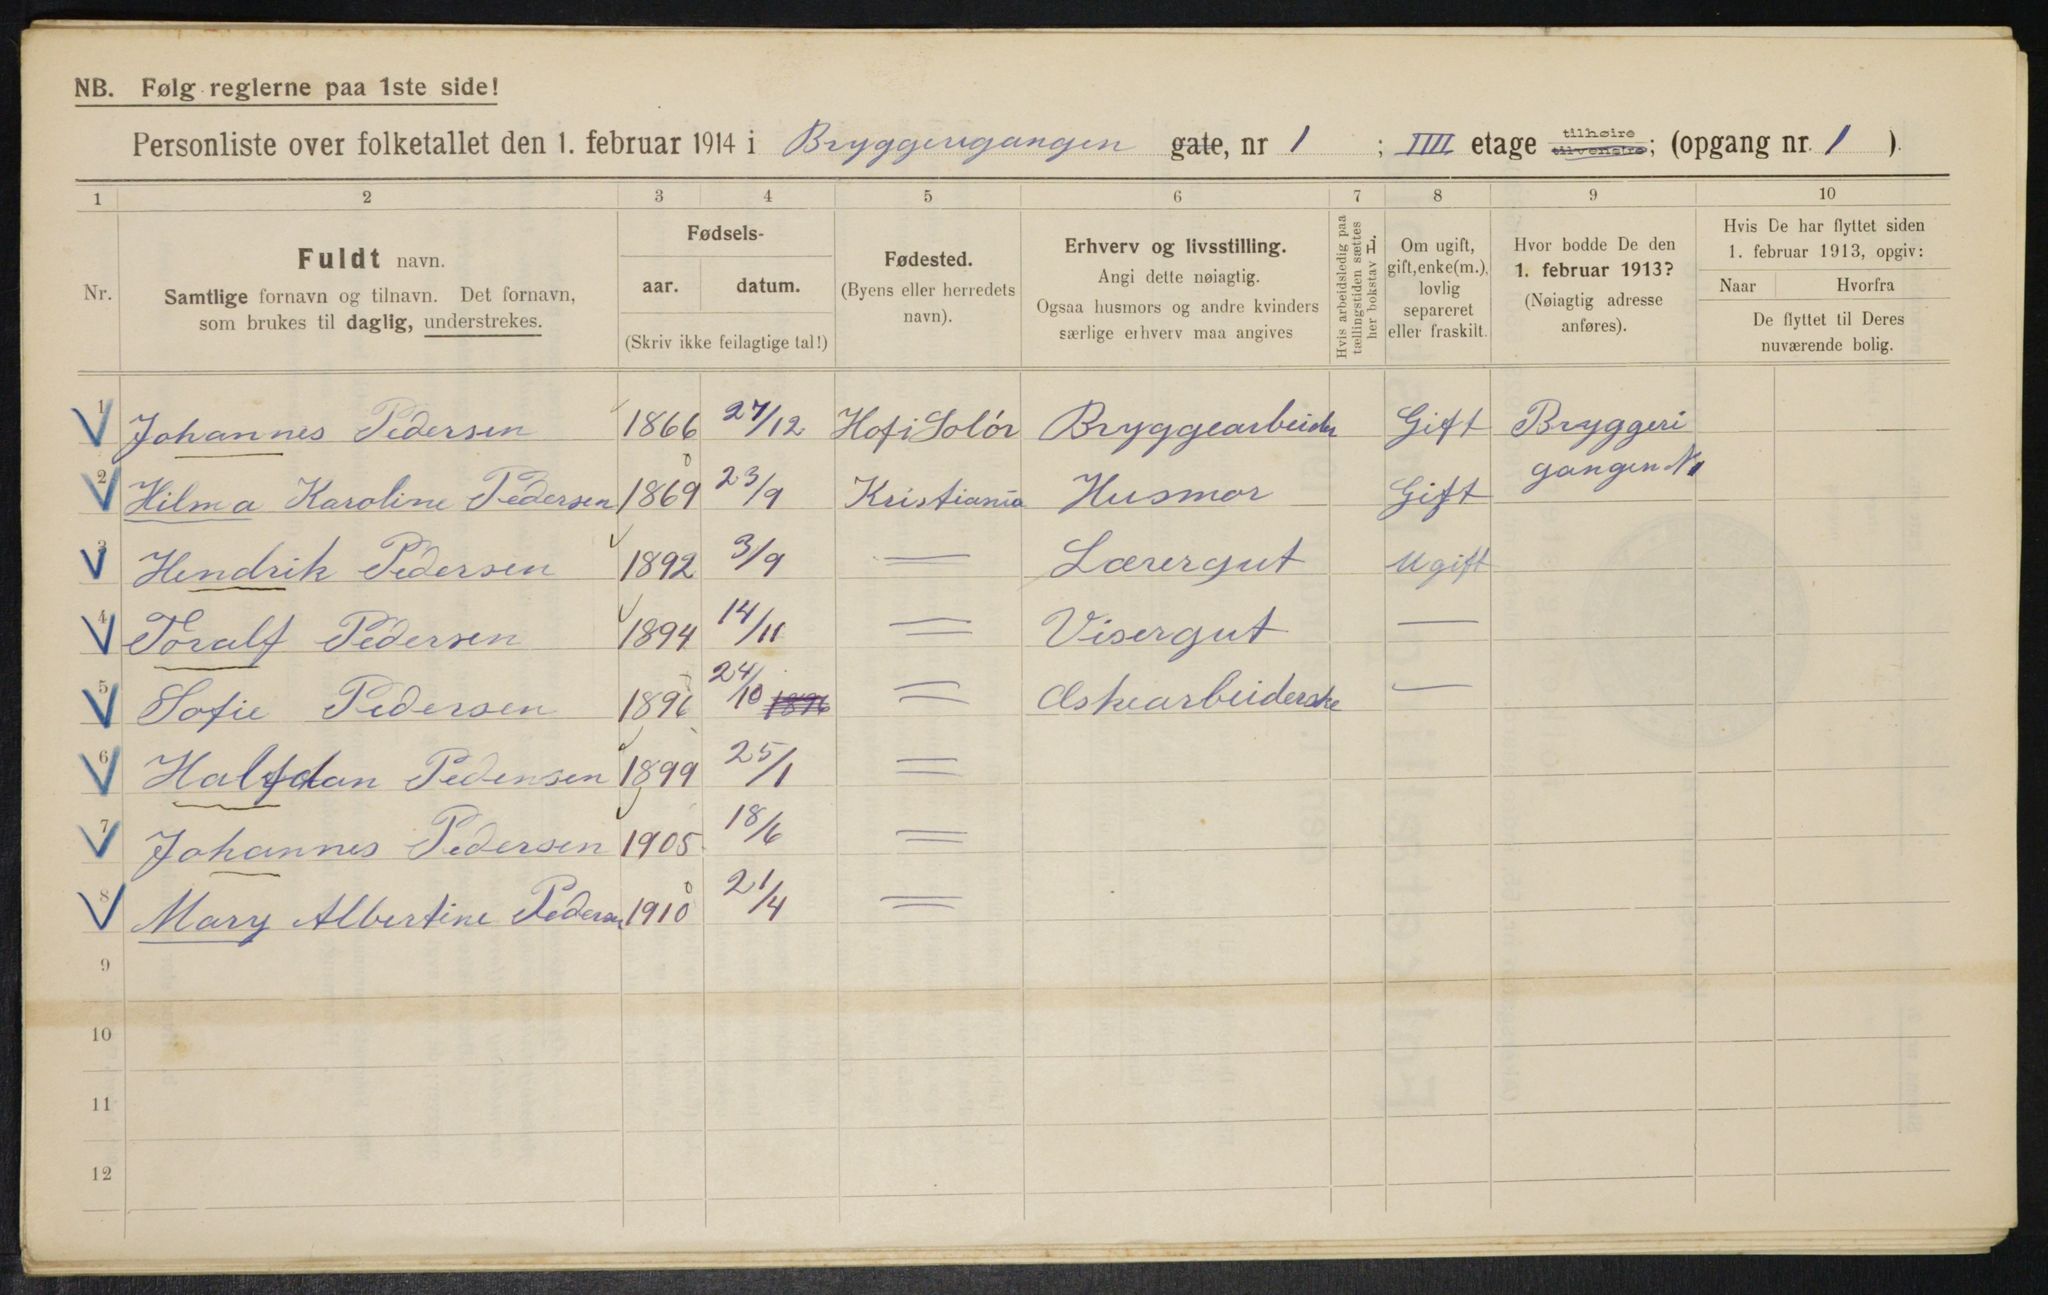 NB. Følg reglerne paa 1ste side!
Personliste over folketallet den 1. februar 1914 i Bryggerigangen gate, nr 1 ; IIII etage tilhøire tilvenstre; (opgang nr. 1 ).
1 2 3 4 5 6 7 8 9 10
Nr.
Fuldt navn.
Samtlige fornavn og tilnavn. Det fornavn,
som brukes til daglig, understrekes.
Fødsels-
aar. datum.
(Skriv ikke feilagtige tal!)
Fødested.
(Byens eller herredets
navn).
Erhverv og livsstilling.
Angi dette nøiagtig.
Ogsaa husmors og andre kvinders
særlige erhverv maa angives
Hvis arbeidsledig paa
tællingstiden sættes
her bokstav L.
Om ugift,
gift, enke(m.),
lovlig
separeret
eller fraskilt.
Hvor bodde De den
1. februar 1913?
(Nøiagtig adresse
anføres).
Hvis De har flyttet siden
1. februar 1913, opgiv:
Naar Hvorfra
De flyttet til Deres
nuværende bolig.
1 Johannes Pedersen 1866 27/12 Hof i Solör Bryggearbeider Gift Bryggeri
gangen N1
2 Hilma Karoline Pedersen 1869 23/9 Kristiania Husmor Gift
3 Hendrik Pedersen 1892 3/9 — Lærergut Ugift
4 Toralf Pedersen 1894 14/11 — Visergut —
5 Sofie Pedersen 1896 24/10 1896 — Æskearbeiderske —
6 Halfdan Pedersen 1899 25/1 —
7 Johannes Pedersen 1905 18/6 —
8 Mary Albertine Pedersen 1910 21/4 —
9
10
11
12